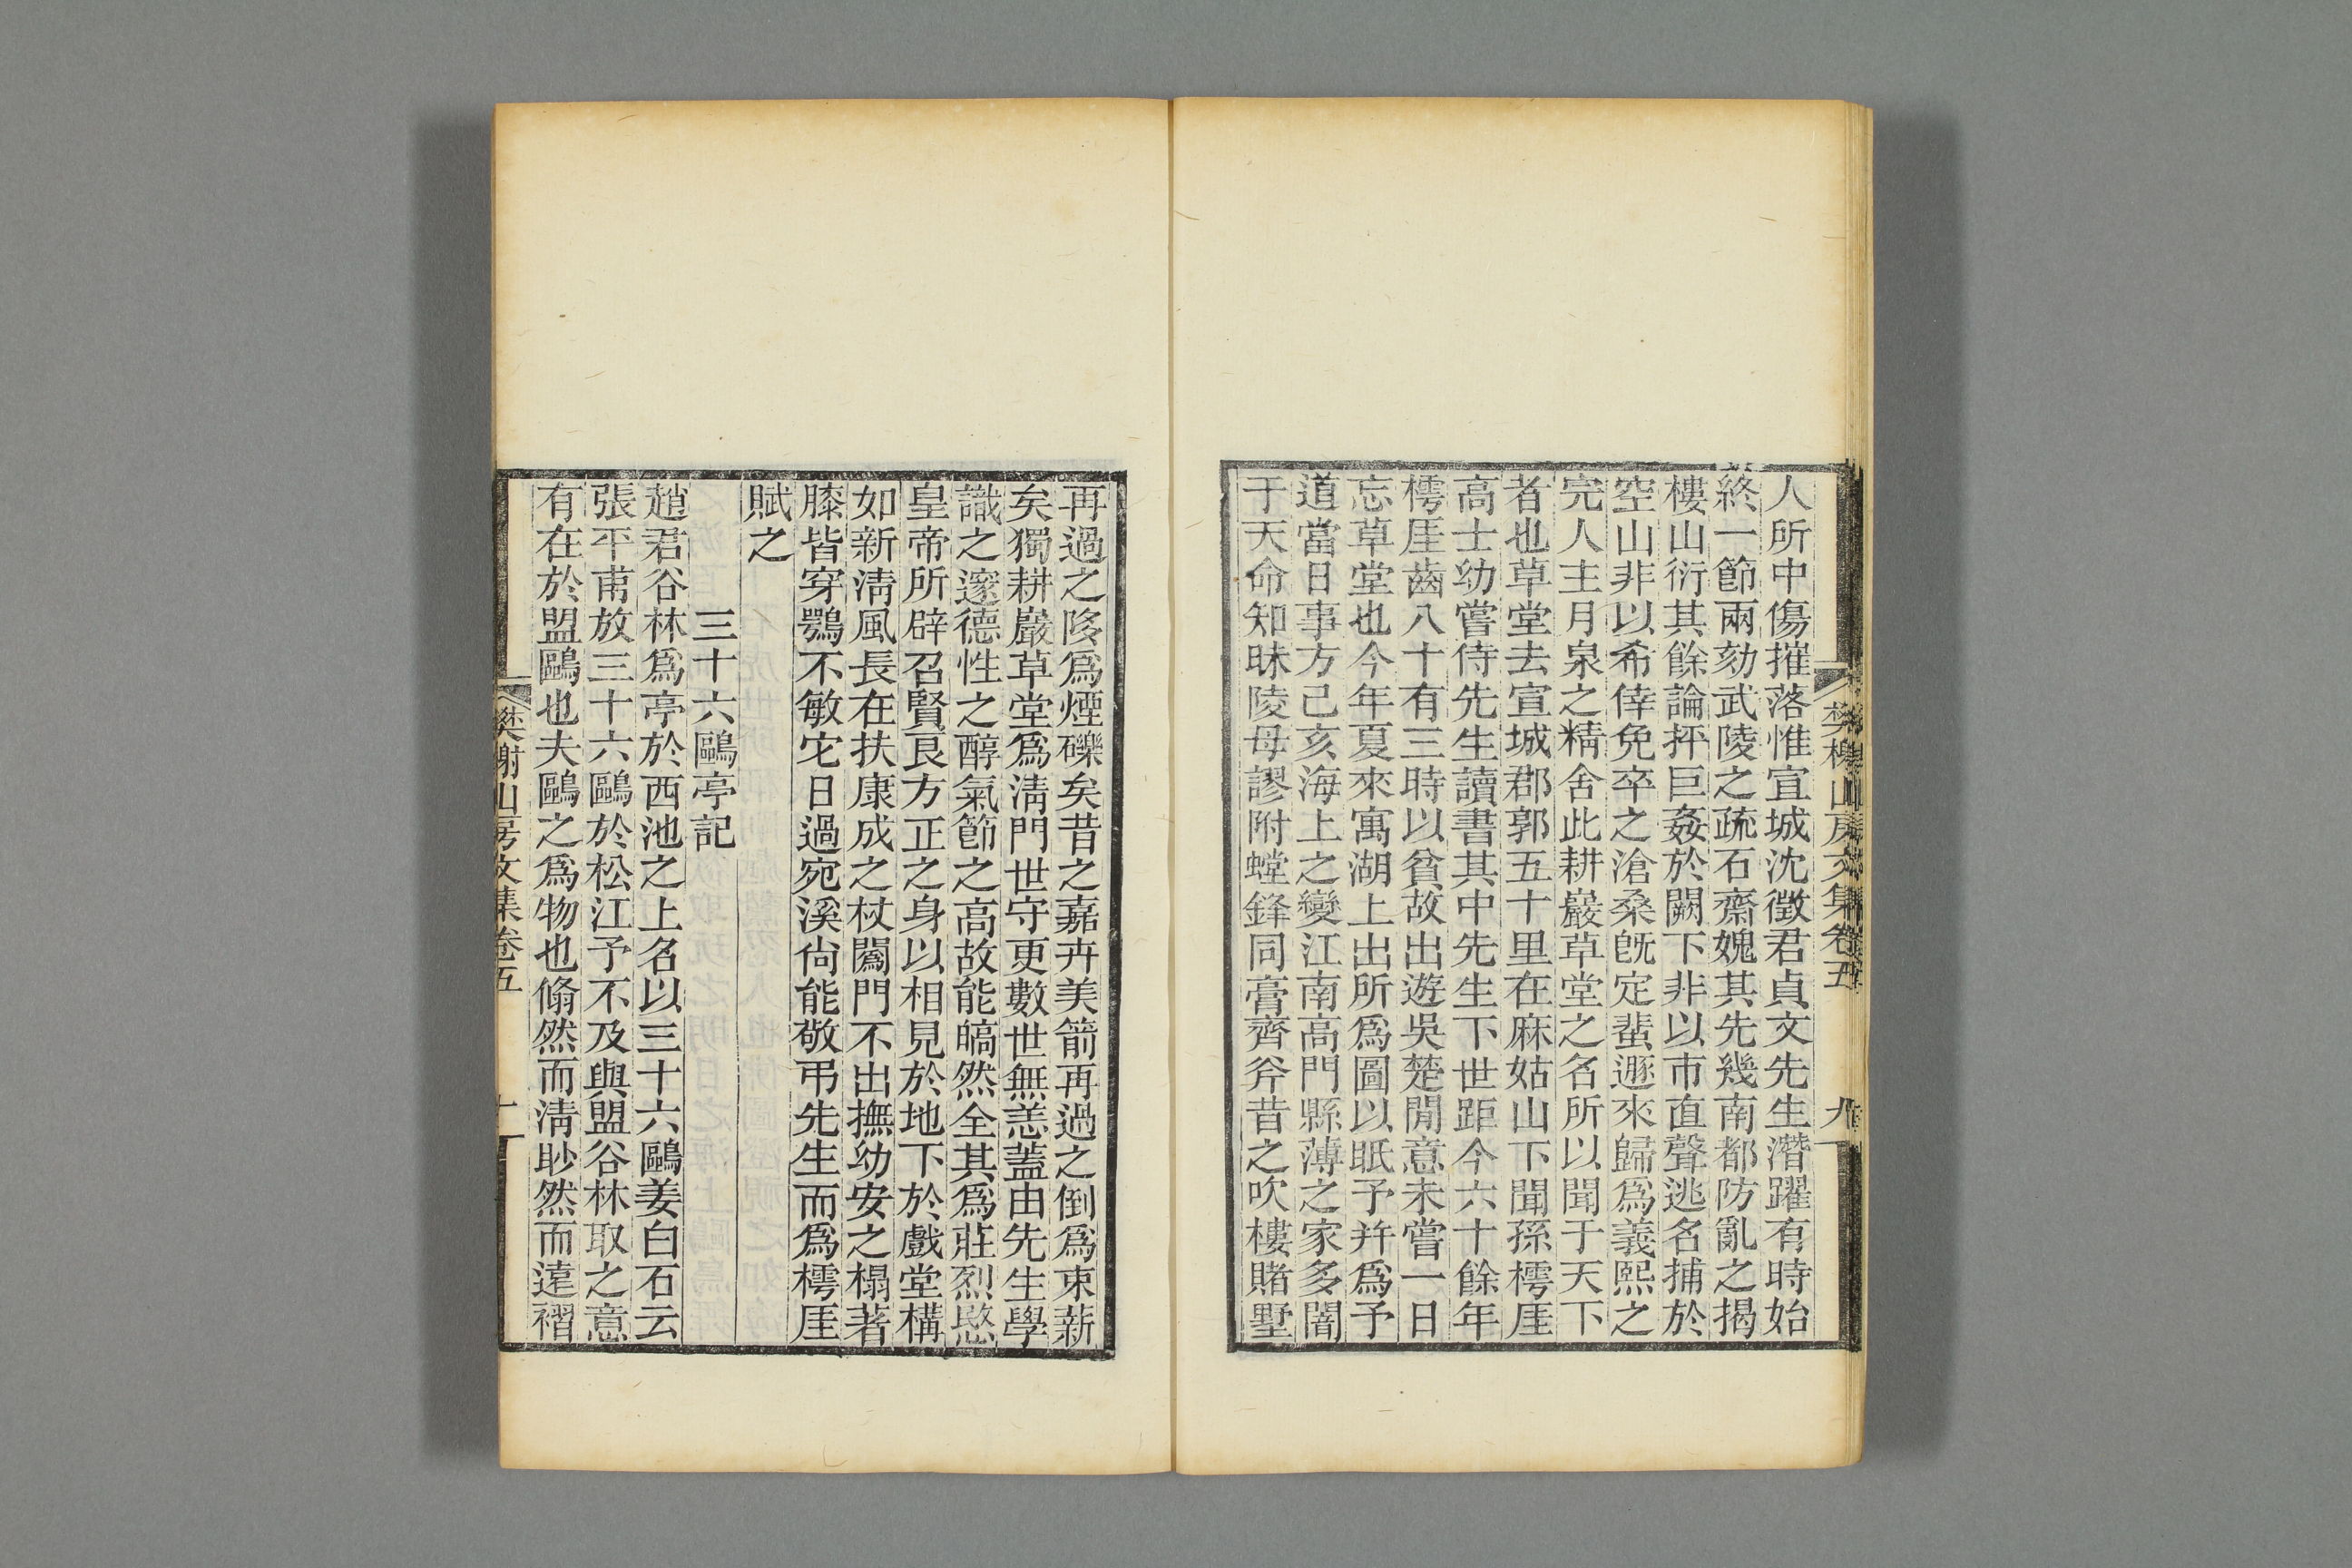 樊榭山房文集卷五
九
人所中傷摧落惟宣城沈徵君貞文先生潛躍有時始
終一節兩劾武陵之疏石齋媿其先幾南都防亂之揭
樓山衍其餘論抨巨姦於闕下非以市直聲逃名捕於
空山非以希倖免卒之滄桑旣定蜚遯來歸爲義熙之
完人主月泉之精舍此耕巖草堂之名所以聞于天下
者也草堂去宣城郡郭五十里在麻姑山下聞孫樗厓
高士幼嘗侍先生讀書其中先生下世距今六十餘年
樗厓齒八十有三時以貧故出遊吳楚閒意未嘗一日
忘草堂也今年夏來寓湖上出所爲圖以眂予幷爲予
道當日事方己亥海上之變江南高門縣薄之家多闇
于天命知昧陵母謬附螳鋒同膏齊斧昔之吹樓賭墅
再過之陊爲煙礫矣昔之嘉卉美箭再過之倒爲束薪
矣獨耕巖草堂爲淸門世守更數世無恙蓋由先生學
識之邃德性之醇氣節之高故能皜然全其爲莊烈愍
皇帝所辟召賢良方正之身以相見於地下於戲堂構
如新淸風長在扶康成之杖闔門不出撫幼安之榻著
膝皆穿鶚不敏它日過宛溪尙能敬弔先生而爲樗厓
賦之
三十六鷗亭記
趙君谷林爲亭於西池之上名以三十六鷗姜白石云
張平甫放三十六鷗於松江予不及與盟谷林取之意
有在於盟鷗也夫鷗之爲物也翛然而淸眇然而遠褶
樊榭山房文集卷五
十